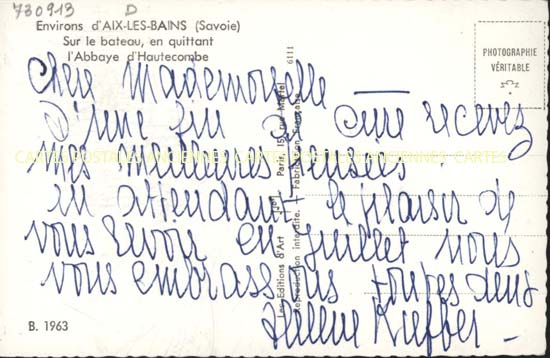 730913 D
Environs d'AIX-LES-BAINS (Savoie)
Sur le bateau, en quittant
l'Abbaye d'Hautecombe
6111
PHOTOGRAPHIE
VÉRITABLE
Chère Mademoiselle —
D'une fin de cure recevez
mes meilleures pensées.
CARTES POSTALES ANCIENNES CARTES
en attendant le plaisir de
vous revoir en juillet nous
vous embrassons toutes deux
Hélène Kieffer —
Les Editions d'Art Paris, 15, rue Martel
Reproduction interdite. Fabrication Française
B. 1963